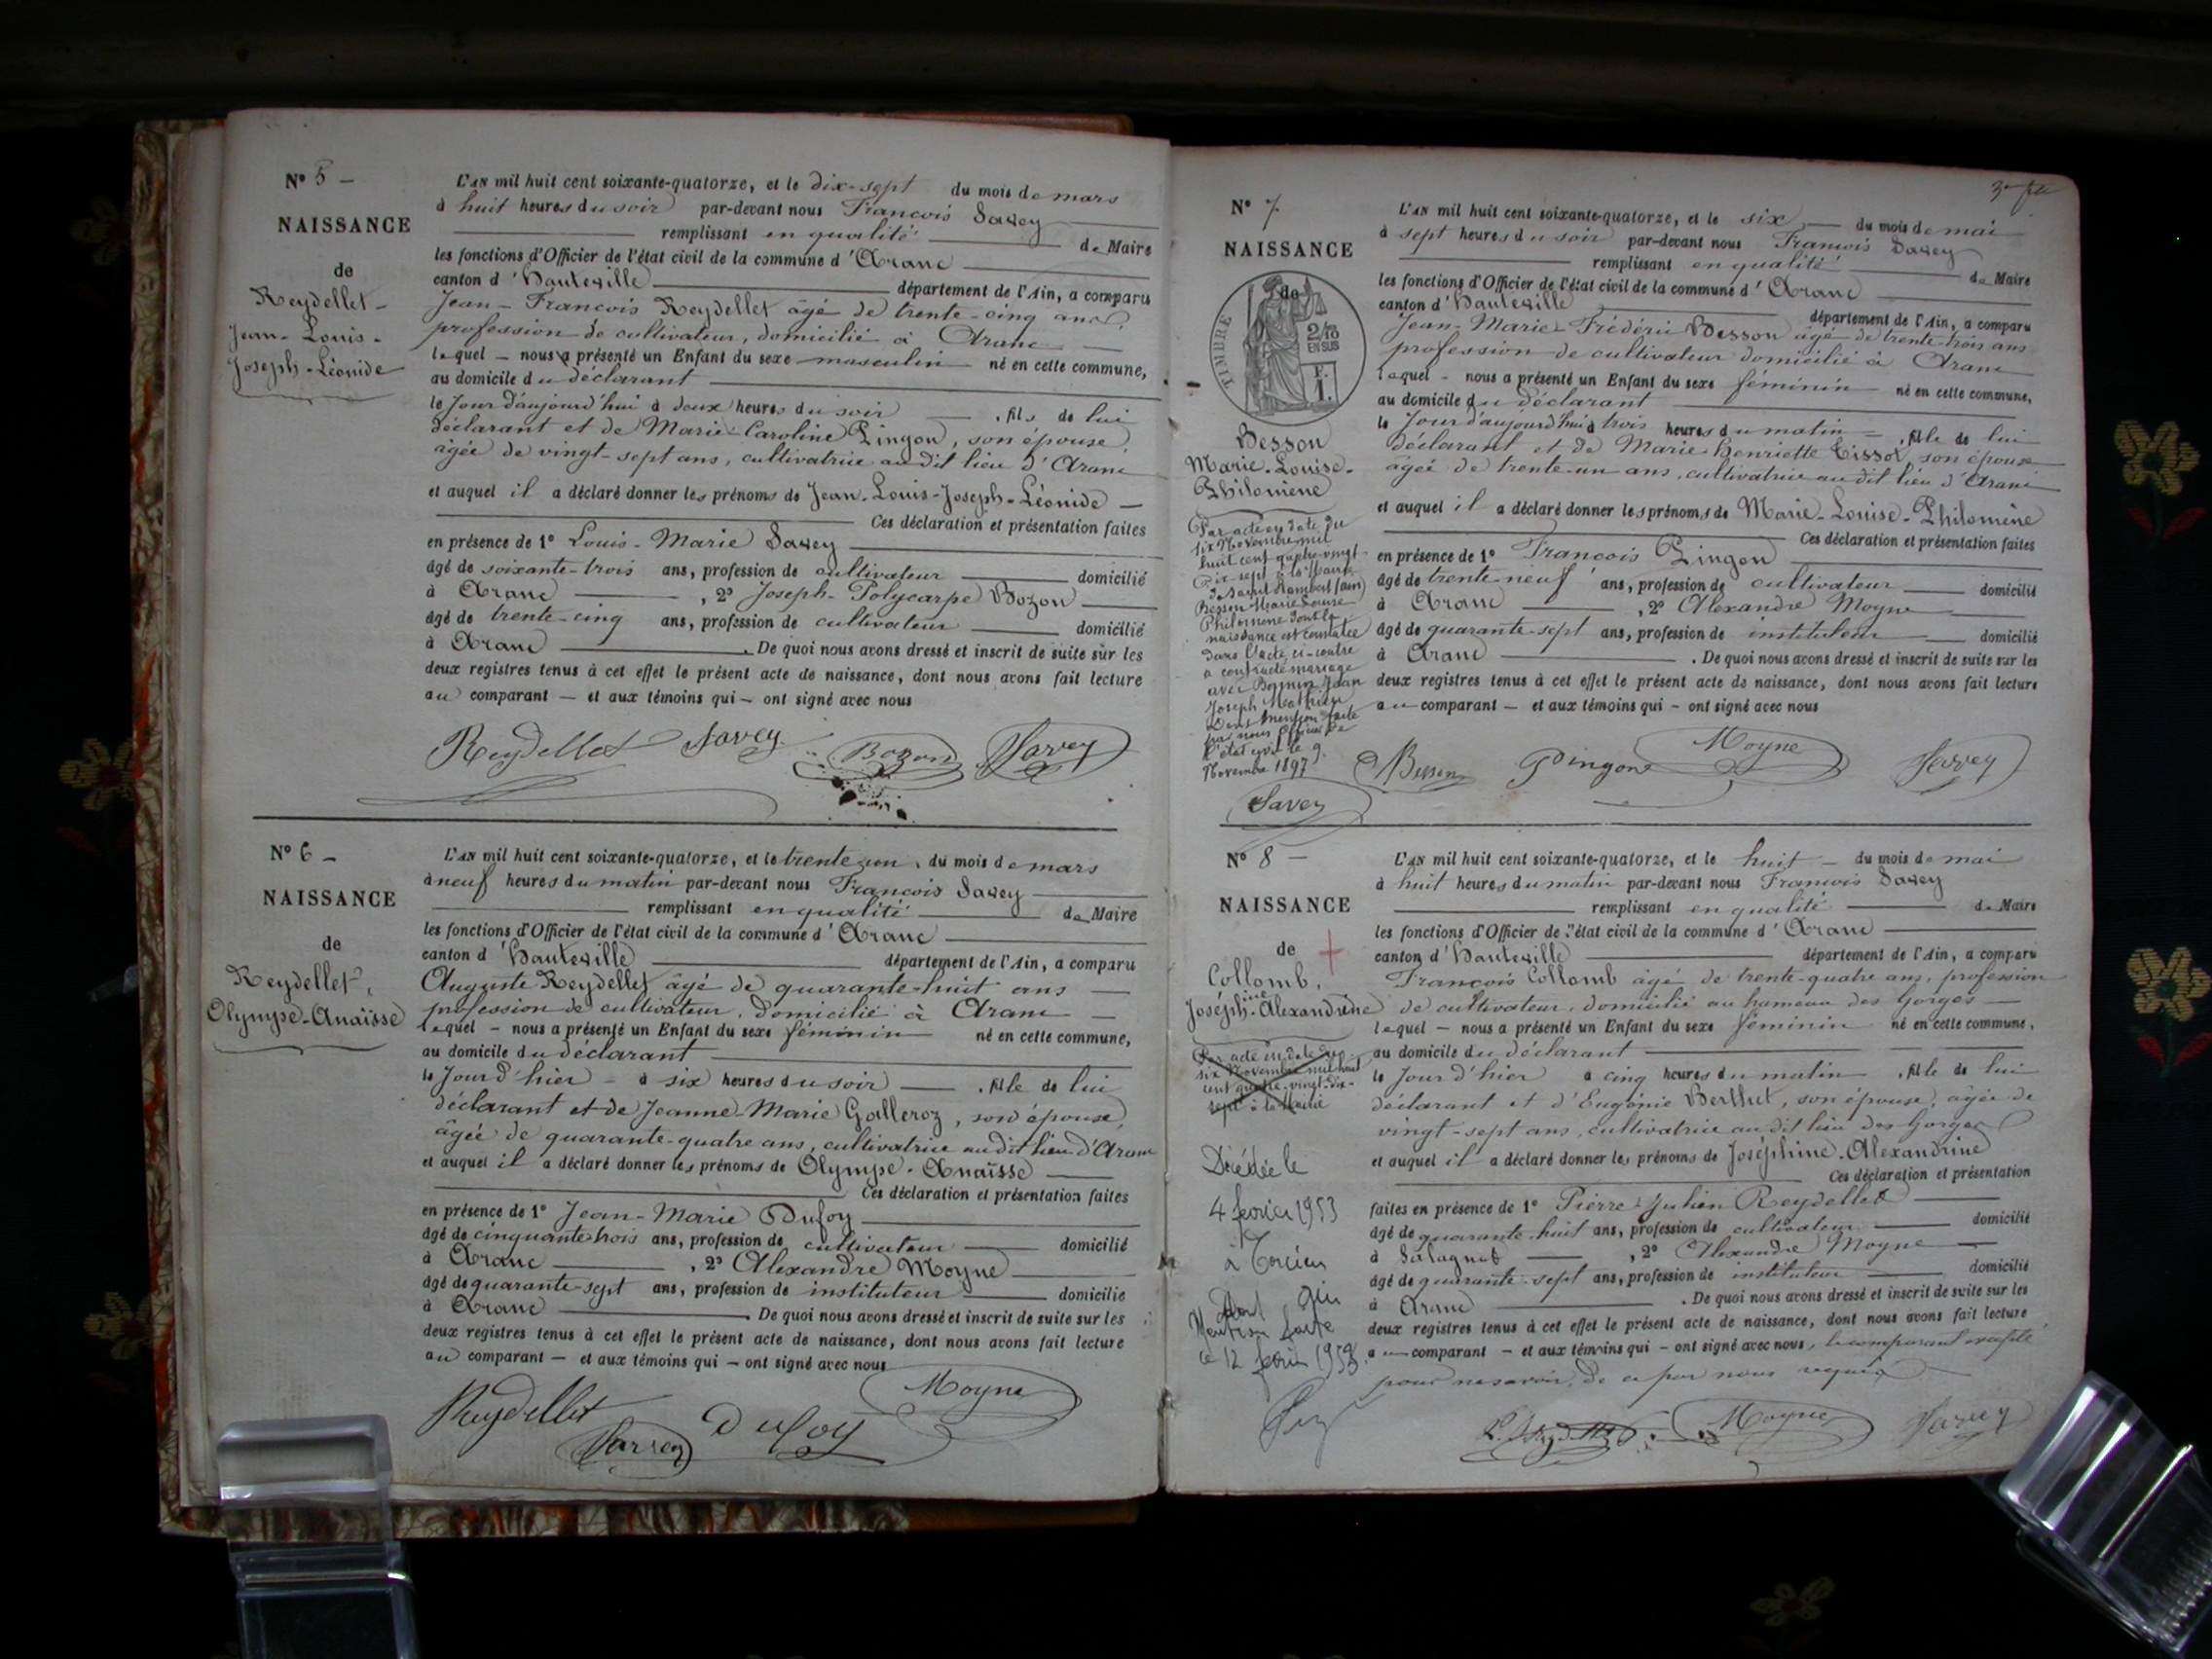 N° 5 –
NAISSANCE
de
Reydellet –
Jean-Louis-
Joseph-Léonide
L'AN mil huit cent soixante-quatorze, et le dix-sept du mois de mars
à huit heures du soir par-devant nous François Savey
remplissant en qualité de Maire
les fonctions d'Officier de l'état civil de la commune d'Aranc
canton d'Hauteville département de l'Ain, a comparu
Jean-François Reydellet âgé de trente-cinq ans,
profession de cultivateur, domicilié à Aranc
lequel – nous a présenté un Enfant du sexe masculin né en cette commune,
au domicile du déclarant
le Jour d'aujourd'hui à deux heures du soir , fils de lui
déclarant et de Marie-Caroline Pingon, son épouse,
âgée de vingt-sept ans, cultivatrice au dit lieu d'Aranc
et auquel il a déclaré donner les prénoms de Jean-Louis-Joseph-Léonide –
Ces déclaration et présentation faites
en présence de 1° Louis-Marie Savey
âgé de soixante-trois ans, profession de cultivateur domicilié
à Aranc , 2° Joseph-Polycarpe Bozon
âgé de trente-cinq ans, profession de cultivateur domicilié
à Aranc . De quoi nous avons dressé et inscrit de suite sur les
deux registres tenus à cet effet le présent acte de naissance, dont nous avons fait lecture
au comparant – et aux témoins qui – ont signé avec nous
Reydellet Savey Bozon Savey
N° 6 –
NAISSANCE
de
Reydellet,
Olympe-Anaïsse
L'AN mil huit cent soixante-quatorze, et le trente-un, du mois de mars
à neuf heures du matin par-devant nous François Savey
remplissant en qualité de Maire
les fonctions d'Officier de l'état civil de la commune d'Aranc
canton d'Hauteville département de l'Ain, a comparu
Auguste Reydellet âgé de quarante-huit ans –
profession de cultivateur, domicilié à Aranc –
lequel – nous a présenté un Enfant du sexe féminin né en cette commune,
au domicile du déclarant
le Jour d'hier – à six heures du soir , fille de lui
déclarant et de Jeanne-Marie Golleroz, son épouse,
âgée de quarante-quatre ans, cultivatrice au dit lieu d'Aranc
et auquel il a déclaré donner les prénoms de Olympe-Anaïsse
Ces déclaration et présentation faites
en présence de 1° Jean-Marie Dufoy
âgé de cinquante-trois ans, profession de cultivateur domicilié
à Aranc , 2° Alexandre Moyne
âgé de quarante-sept ans, profession de instituteur domicilié
à Aranc . De quoi nous avons dressé et inscrit de suite sur les
deux registres tenus à cet effet le présent acte de naissance, dont nous avons fait lecture
au comparant – et aux témoins qui – ont signé avec nous
Reydellet Savey Dufoy Moyne
N° 7
NAISSANCE
de
TIMBRE
2/10
EN SUS
F.
1.
Besson
Marie-Louise-
Philomène
Par acte en date du
six Novembre mil
huit cent quatre-vingt-
dix-sept à la Mairie
de Saint Rambert (Ain)
Besson Marie Louise
Philomène dont la
naissance est constatée
dans l'acte ci-contre
a contracté mariage
avec Jean
Joseph
Dont mention faite
par nous officier de
l'état civil le 9
Novembre 1897
Savey
L'AN mil huit cent soixante-quatorze, et le six du mois de mai
à sept heures du soir par-devant nous François Savey
remplissant en qualité de Maire
les fonctions d'Officier de l'état civil de la commune d'Aranc
canton d'Hauteville département de l'Ain, a comparu
Jean-Marie-Frédéric Besson âgé de trente-trois ans
profession de cultivateur domicilié à Aranc
lequel – nous a présenté un Enfant du sexe féminin né en cette commune,
au domicile du déclarant
le Jour d'aujourd'hui à trois heures du matin – , fille de lui
déclarant et de Marie Henriette Tissot, son épouse
âgée de trente-un ans, cultivatrice au dit lieu d'Aranc
et auquel il a déclaré donner les prénoms de Marie-Louise-Philomène
Ces déclaration et présentation faites
en présence de 1° François Pingon
âgé de trente-neuf ans, profession de cultivateur domicilié
à Aranc , 2° Alexandre Moyne
âgé de quarante-sept ans, profession de instituteur domicilié
à Aranc . De quoi nous avons dressé et inscrit de suite sur les
deux registres tenus à cet effet le présent acte de naissance, dont nous avons fait lecture
au comparant – et aux témoins qui – ont signé avec nous
Besson Pingon Moyne Savey
N° 8 –
NAISSANCE
de
Collomb,
Joséphine-Alexandrine
Par acte en date du
six Novembre mil huit
cent quatre-vingt-dix-
sept à la Mairie
Décédée le
4 février 1953
à Torcieu
dont
Mention faite
ce 12 février 1953.
L'AN mil huit cent soixante-quatorze, et le huit – du mois de mai
à huit heures du matin par-devant nous François Savey
remplissant en qualité de Maire
les fonctions d'Officier de l'état civil de la commune d'Aranc
canton d'Hauteville département de l'Ain, a comparu
François Collomb âgé de trente-quatre ans, profession
de cultivateur, domicilié au hameau des Gorges –
lequel – nous a présenté un Enfant du sexe féminin né en cette commune,
au domicile du déclarant
le Jour d'hier à cinq heures du matin , fille de lui
déclarant et d'Eugénie Berthet, son épouse, âgée de
vingt-sept ans, cultivatrice au dit lieu des Gorges
et auquel il a déclaré donner les prénoms de Joséphine-Alexandrine
Ces déclaration et présentation
faites en présence de 1° Pierre-Julien Reydellet
âgé de quarante-huit ans, profession de cultivateur domicilié
à Salagnat , 2° Alexandre Moyne
âgé de quarante-sept ans, profession de instituteur domicilié
à Aranc . De quoi nous avons dressé et inscrit de suite sur les
deux registres tenus à cet effet le présent acte de naissance, dont nous avons fait lecture
au comparant – et aux témoins qui – ont signé avec nous, le comparant excepté
pour ne savoir, de ce par nous requis
Moyne Savey